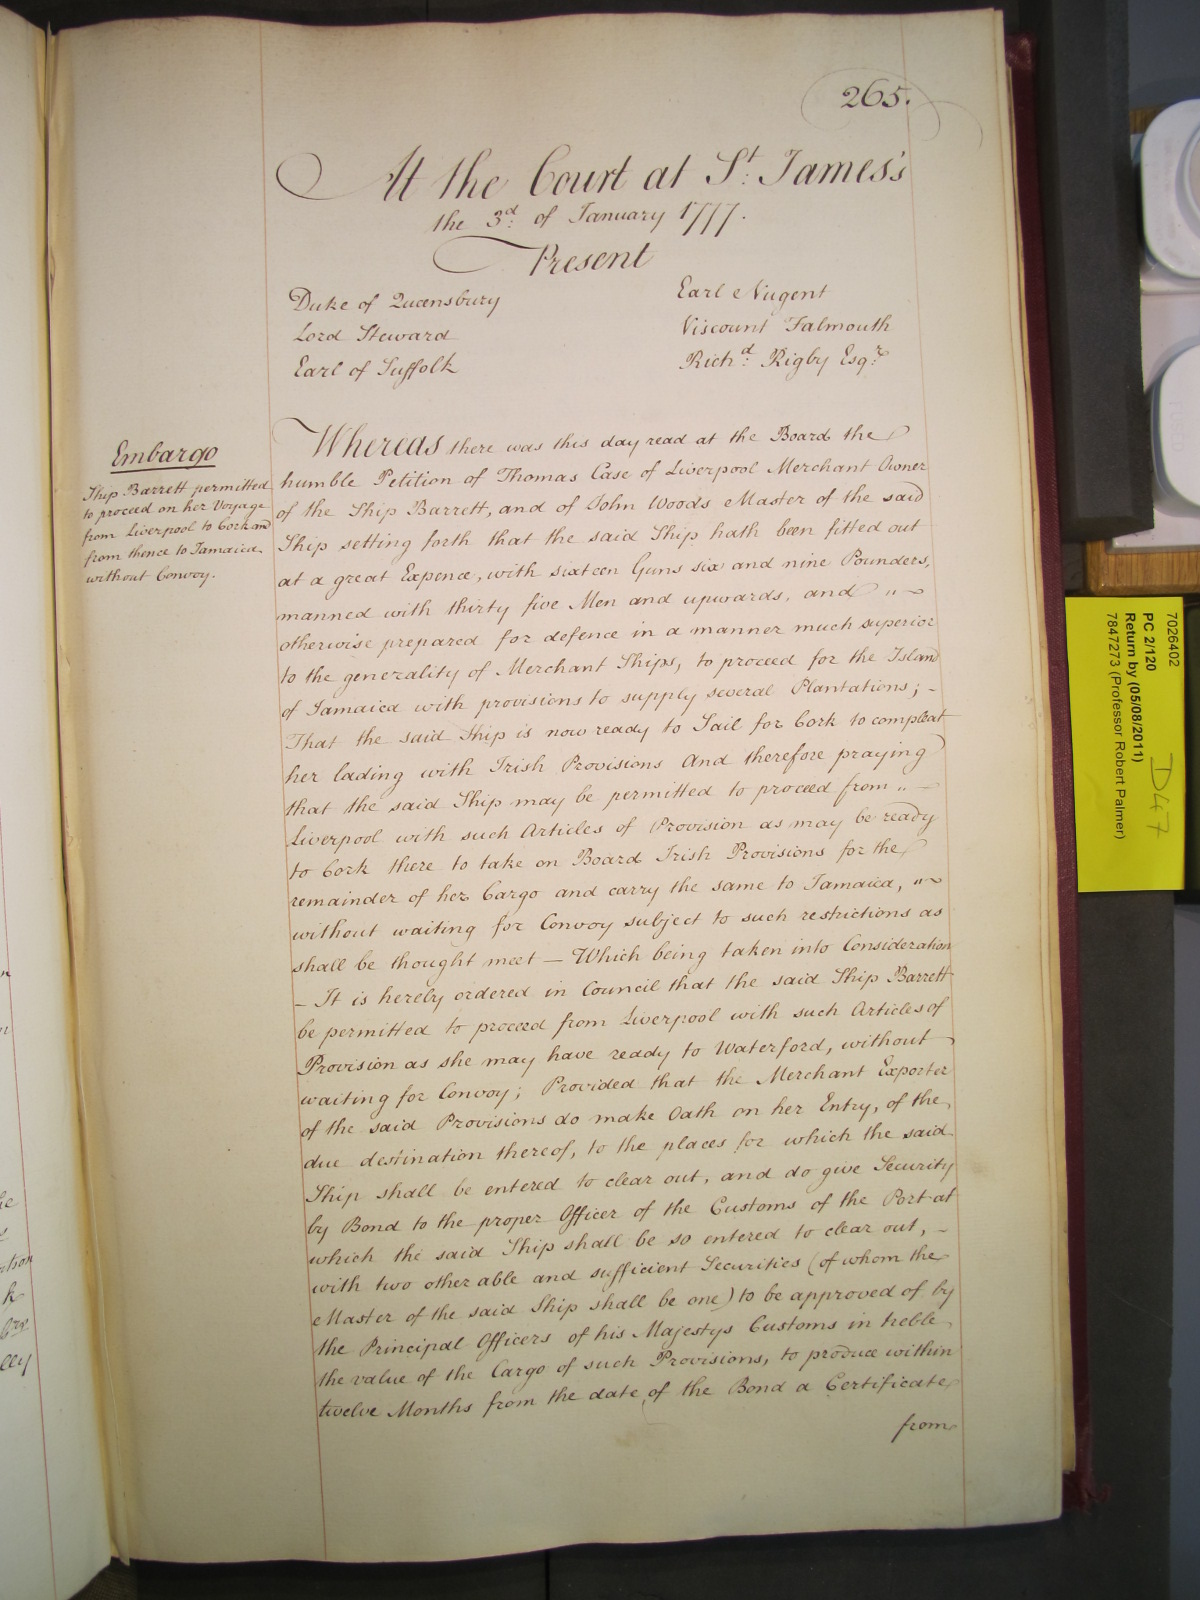 265.
At the Court at St: James's
the 3d: of January 1777.
Present
Duke of Queensbury
Lord Steward
Earl of Suffolk
Earl Nugent
Viscount Falmouth
Richd: Rigby Esqr:
Embargo
Ship Barrett permitted
to proceed on her Voyage
from Liverpool to Cork and
from thence to Jamaica
without Convoy.
Whereas there was this day read at the Board the
humble Petition of Thomas Case of Liverpool Merchant Owner
of the Ship Barrett, and of John Woods Master of the said
Ship setting forth that the said Ship hath been fitted out
at a great Expence, with sixteen Guns six and nine Pounders,
manned with thirty five Men and upwards, and
otherwise prepared for defence in a manner much superior
to the generality of Merchant Ships, to proceed for the Island
of Jamaica with provisions to supply several Plantations; -
That the said Ship is now ready to Sail for Cork to compleat
her lading with Irish Provisions And therefore praying
that the said Ship may be permitted to proceed from
Liverpool with such Articles of Provision as may be ready
to Cork there to take on Board Irish Provisions for the
remainder of her Cargo and carry the same to Jamaica,
without waiting for Convoy subject to such restrictions as
shall be thought meet — Which being taken into Consideration
- It is hereby ordered in Council that the said Ship Barrett
be permitted to proceed from Liverpool with such Articles of
Provision as she may have ready to Waterford, without
waiting for Convoy; Provided that the Merchant Exporter
of the said Provisions do make Oath on her Entry, of the
due destination thereof, to the places for which the said
Ship shall be entered to clear out, and do give Security
by Bond to the proper Officer of the Customs of the Port at
which the said Ship shall be so entered to clear out, -
with two other able and sufficient Securities (of whom the
Master of the said Ship shall be one) to be approved of by
the Principal Officers of his Majestys Customs in treble
the value of the Cargo of such Provisions, to produce within
twelve Months from the date of the Bond a Certificate
from
7026402
PC 2/120
Return by (05/08/2011)
7847273 (Professor Robert Palmer)
D47